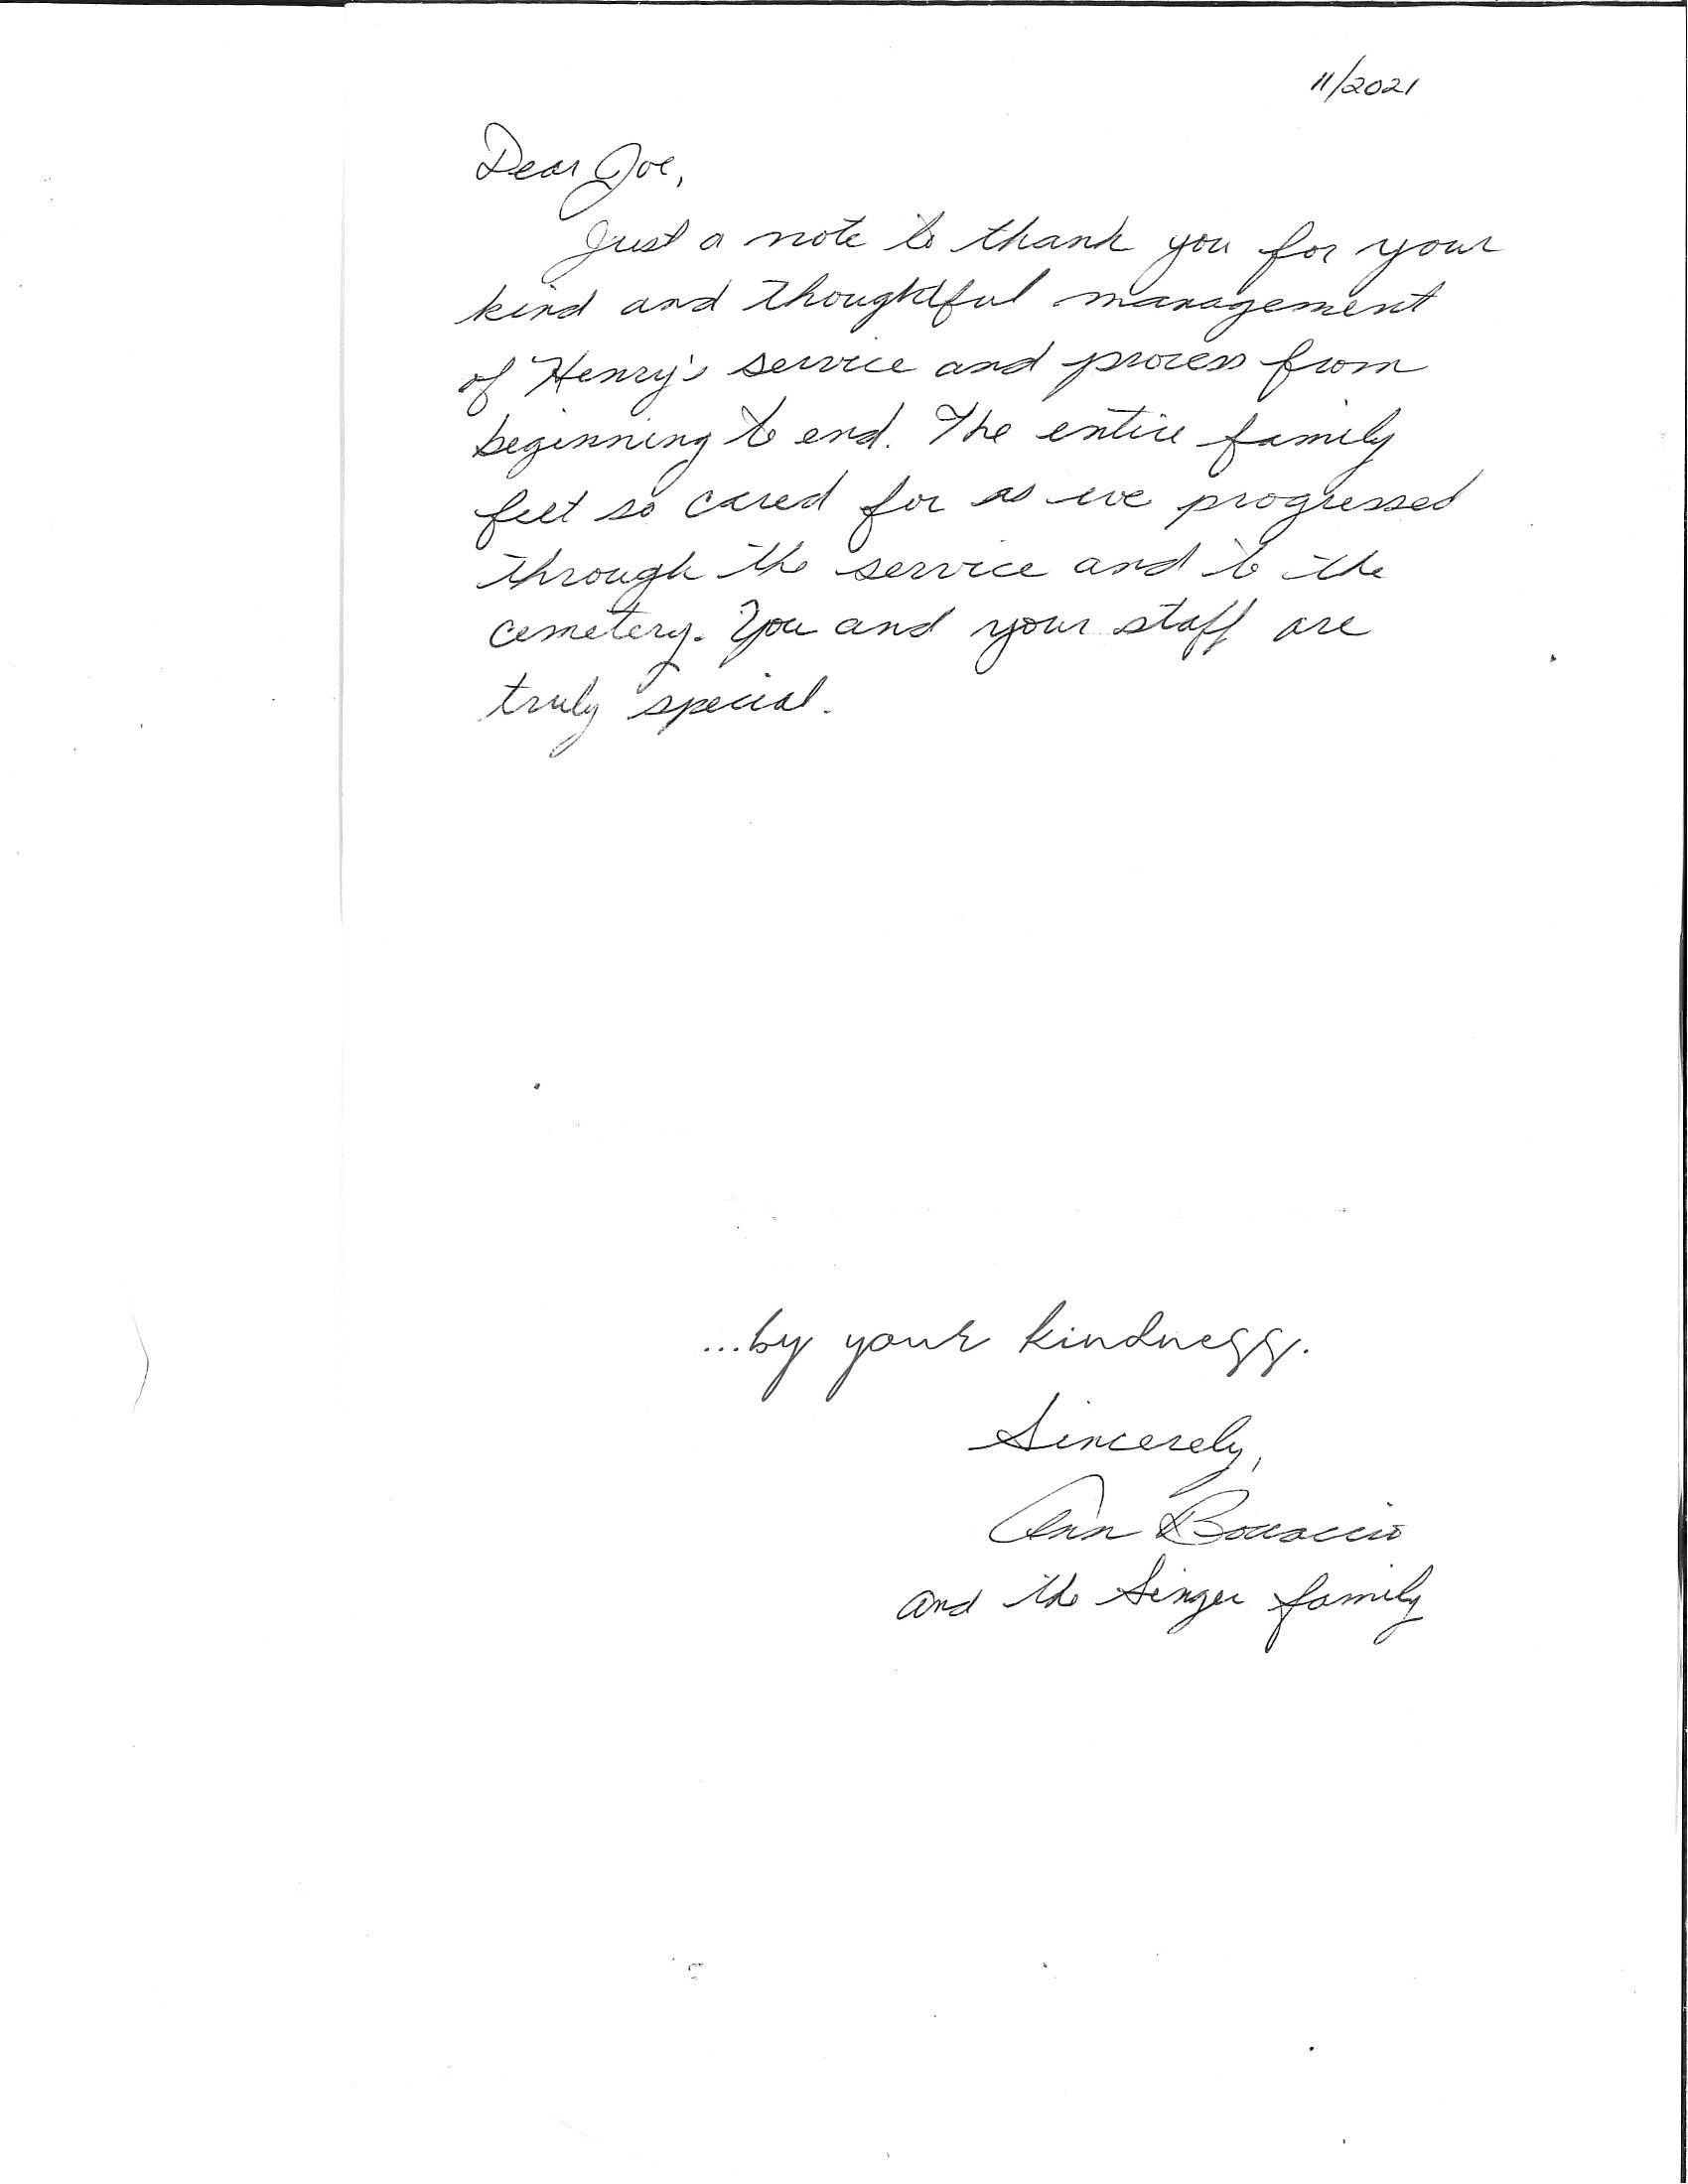 11/2021
Dear Joe,
Just a note to thank you for your
kind and thoughtful management
of Henry's service and process from
beginning to end. The entire family
felt so cared for as we progressed
through the service and to the
cemetery. You and your staff are
truly special.
...by your kindness.
Sincerely,
Ann Boccaccio
and the Singer family